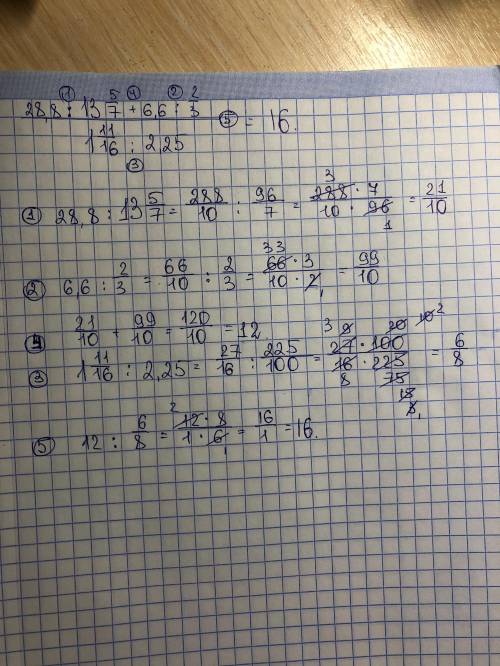 ① ④ ②
28,8 : 13 5/7 + 6,6 : 2/3
1 11/16 : 2,25 ⑤ = 16.
③
① 28,8 : 13 5/7 = 288/10 : 96/7 = 288 · 7 / 10 · 96 = 21/10
② 6,6 : 2/3 = 66/10 : 2/3 = 66 · 3 / 10 · 2 = 99/10
④ 21/10 + 99/10 = 120/10 = 12
③ 1 11/16 : 2,25 = 27/16 : 225/100 = 27 · 100 / 16 · 225 = 6/8
⑤ 12 : 6/8 = 12 · 8 / 1 · 6 = 16/1 = 16.